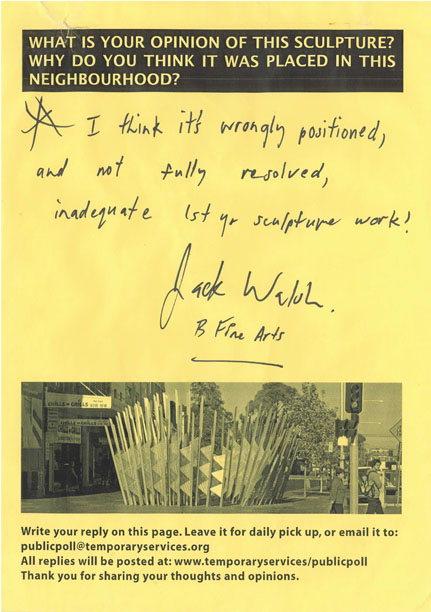 WHAT IS YOUR OPINION OF THIS SCULPTURE?
WHY DO YOU THINK IT WAS PLACED IN THIS
NEIGHBOURHOOD?
I think it's wrongly positioned,
and not fully resolved,
inadequate 1st yr sculpture work!
Jack Walsh.
B Fine Arts
CHILLS - CHILLS
Write your reply on this page. Leave it for daily pick up, or email it to:
publicpoll@temporaryservices.org
All replies will be posted at: www.temporaryservices/publicpoll
Thank you for sharing your thoughts and opinions.